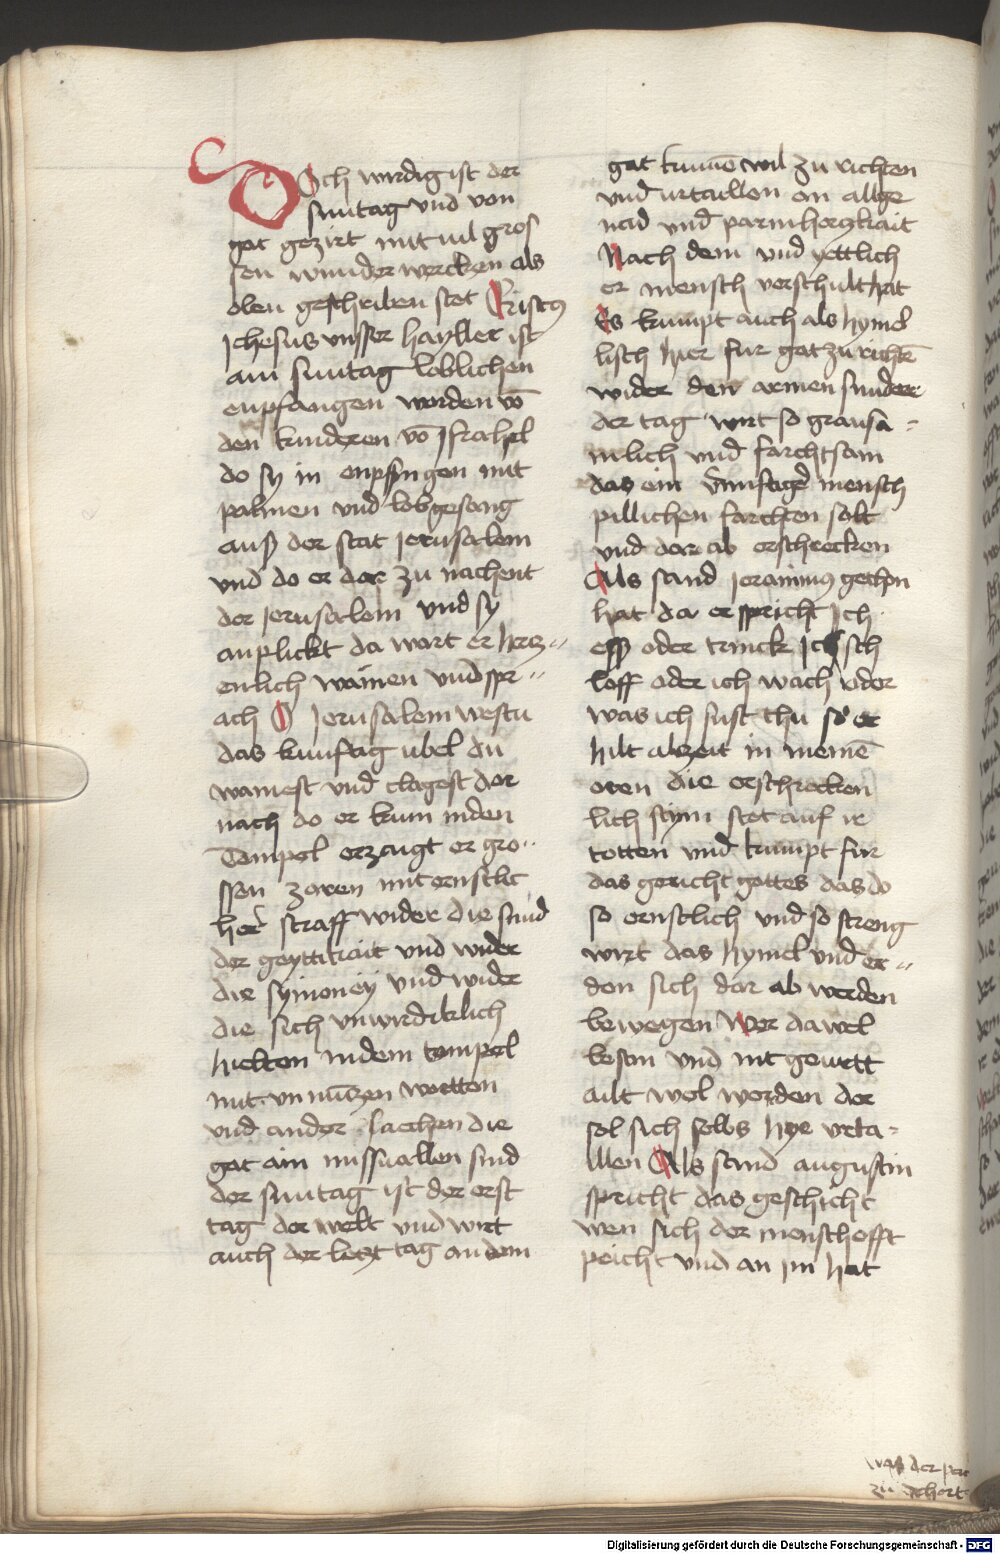 Och wirdig ist der
suntag vnd von
got gezirt mit uil gros
sen wunder wercken als
oben geschriben stet Cristꝰ
ihesus vnsser hayller ist
am suntag loblichen
enpfangen worden vō
den kinderen vō israhel
do sy in enpfingen mit
palmen vnd lobgesang
auß der stat ierusalem
vnd do er dar zu nachent
der ierusalem vnd sy
anplickt da wart er hertz-
enlich wainen vnd spr-
ach O Jerusalem westu
das kunftag ubel du
wainest vnd clagest dar
nach do er kum inden
Tempel erzaigt er gro-
ssen zoren mit ernstlic
her straff wider die sund
der geyttikait vnd wider
die symoney vnd wider
die sich vnwirdiklich
hielten indem tempel
mit vn nuczen wortten
vnd ander sachen die
got ain missuallen sind
der suntag ist der erst
tag der welt vnd wirt
auch der letzt tag an dem
got kumē wil zu richten
vnd urtaillen on allge
nad vnd parmherczkait
Nach dem vnd yettlich
er mensch verschult hat
Es kumpt auch als hymel
lisch hier fur got zu richtē
wider den armen sunder
der tag wirt so grausa-
mlich vnd farchtsam
das ein vernuftiger mensch
pillichen farchten solt
vnd dar ab erschrecken
Als sand ieranimꝰ gethon
hat da er spricht Ich
ess oder trinck ich sch
loff oder ich wach oder
was ich sust thu so er
hilt alzeit in meinē
oren die erschrecken
lich stym stet auf ir
totten vnd kumpt fur
das gericht gottes das do
so ernstlich vnd so streng
wirt das hymel vnd er-
den sich dar ab werden
bewegen Wer da wel
beston vnd nit geurtt
ailt wel werden der
sol sich selbs hye vrta-
illen Als sand augustin
spricht das geschicht
wen sich der mensch offt
peicht vnd an im hat
was der pei
zu gehort
Digitalisierung gefördert durch die Deutsche Forschungsgemeinschaft - DFG